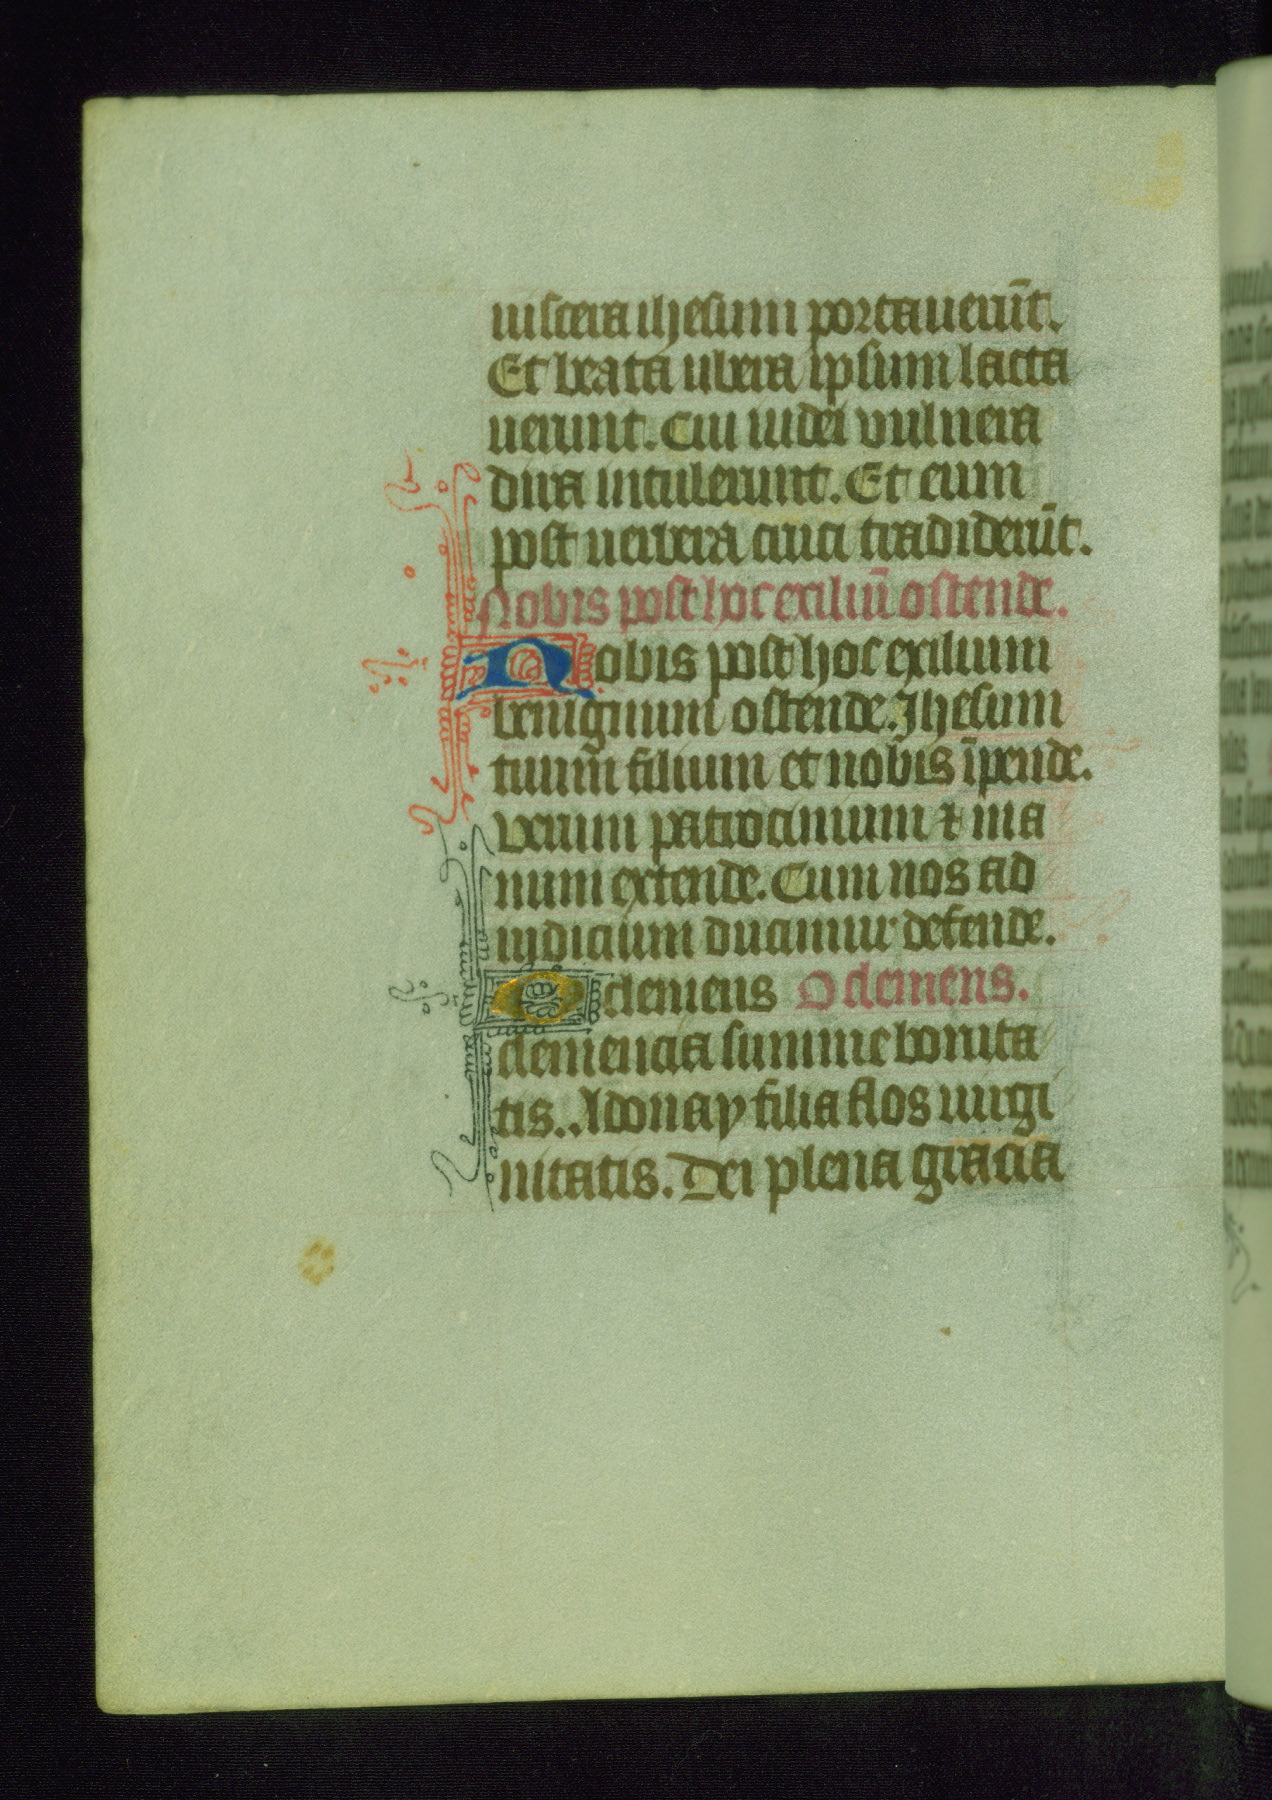 uiscera ihesum portauerūt.
Et beata ubera ipsum lacta
uerunt. Cui iudei vulnera
dura intulerunt. Et eum
post uerbera cruci tradiderūt.
Nobis post hoc exiliū ostende.
Nobis post hoc exilium
benignum ostende. Jhesum
tuum filium et nobis īpende.
verum patrocinium ⁊ ma
num extende. Cum nos ad
iudicium ducimur defende.
O clemens O clemens.
clemencia summe bonita
tis. Adonay filia flos uirgi
nitatis. Dei plena gracia